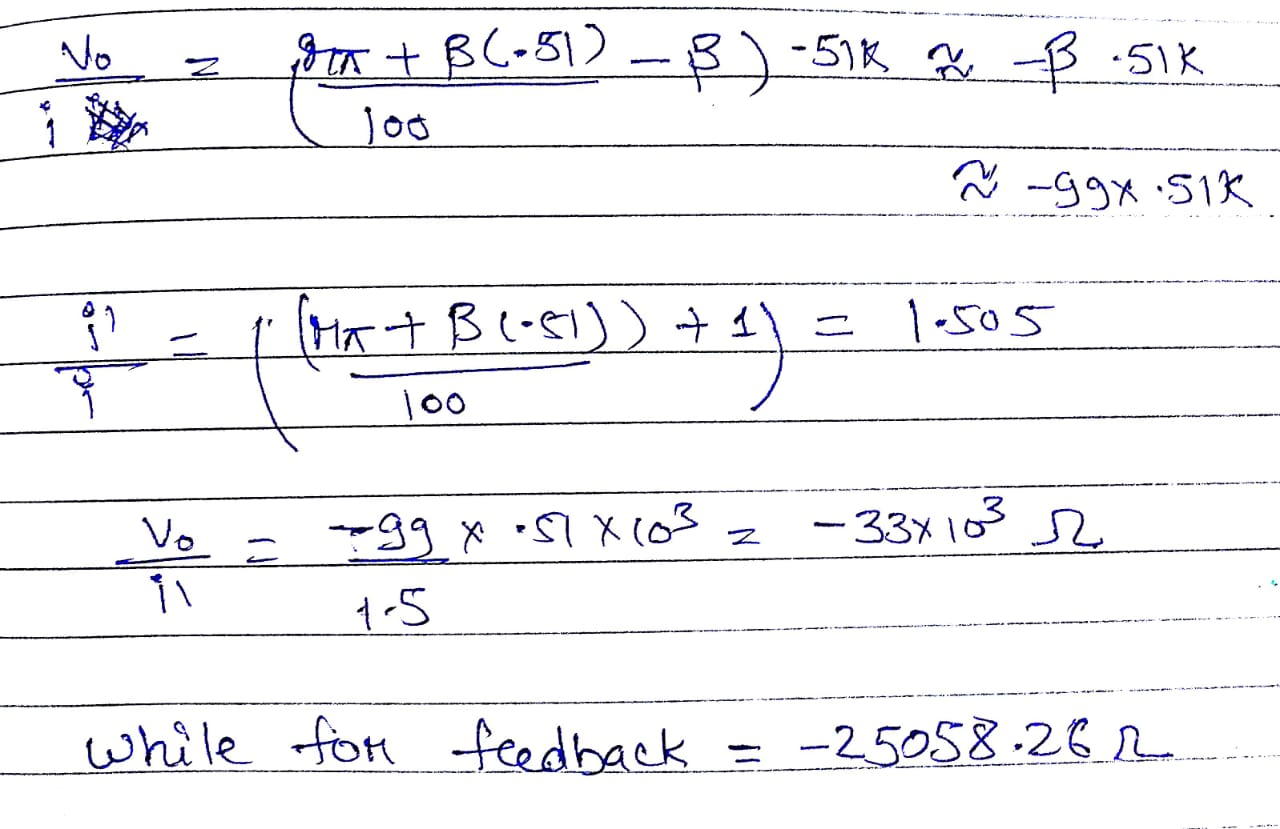 Vo/i = ((rπ + β(.51))/100 - β) .51K ≈ -β .51K
≈ -99x .51K
i1/i = ((rπ + β(.51))/100 + 1) = 1.505
Vo/i1 = (-99 x .51 x 10³)/1.5 = -33x10³ Ω
while for feedback = -25058.26 Ω